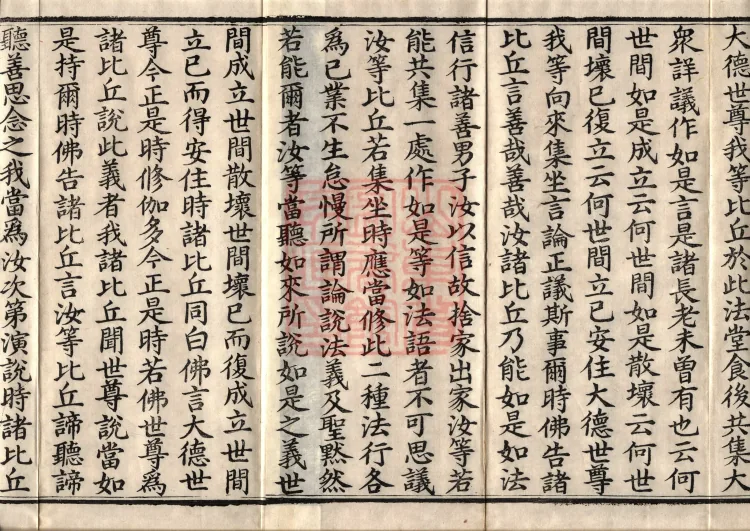 大德世尊我等比丘於此法堂食後共集大
衆詳議作如是言是諸長老未曽有也云何
世間如是成立云何世間如是散壞云何世
間壞已復立云何世間立已安住大德世尊
我等向來集坐言論正議斯事爾時佛告諸
比丘言善哉善哉汝諸比丘乃能如是如法
信行諸善男子汝以信故捨家出家汝等若
能共集一處作如是等如法語者不可思議
汝等比丘若集坐時應當修此二種法行各
爲已業不生怠慢所謂論說法義及聖黙然
若能爾者汝等當聽如來所說如是之義世
間成立世間散壞世間壞已而復成立世間
立已而得安住時諸比丘同白佛言大德世
尊今正是時修伽多今正是時若佛世尊爲
諸比丘說此義者我諸比丘聞世尊說當如
是持爾時佛告諸比丘言汝等比丘諦聽諦
聽善思念之我當爲汝次第演說時諸比丘